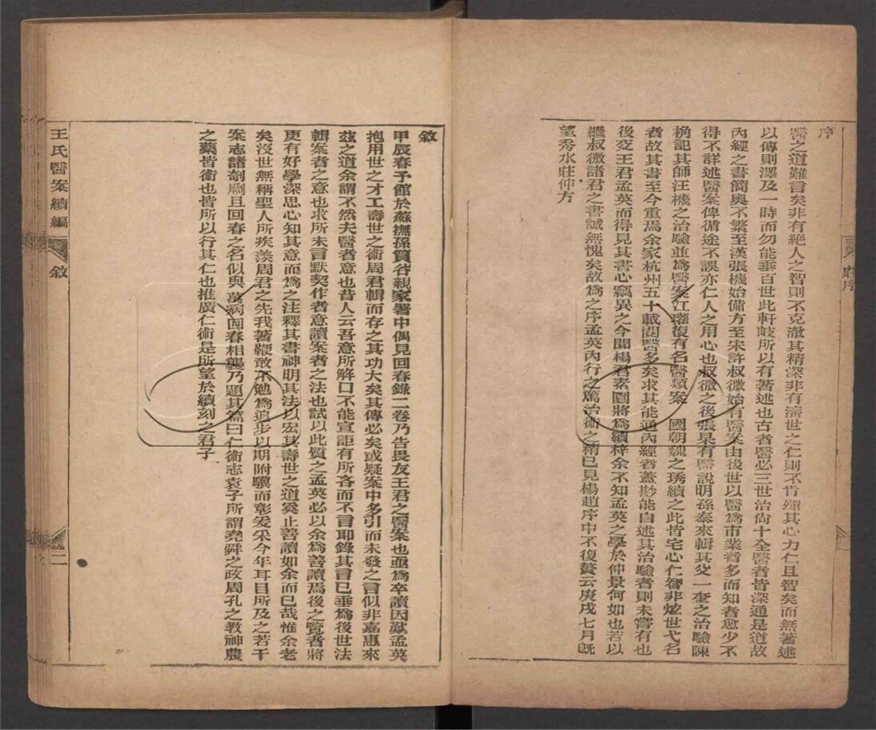 序
醫之道難言矣非有絕人之智則不克澈其精深非有濟世之仁則不肯殫其心力仁且智矣而無著述
以傳則澤及一時而勿能垂百世此軒岐所以有著述也古者醫必三世治尚十全醫者皆深通是道故
內經之書簡奧不繁至漢張機始備方至宋許叔微始有醫案由後世以醫為市業者多而知者愈少不
得不詳述醫案俾循途不誤亦仁人之用心也叔微之後張杲有醫說明孫泰來輯其父一奎之治驗陳
桷記其師汪機之治驗並為醫案江瓘復有名醫類案 國朝魏之琇續之此皆宅心仁智非炫世弋名
者故其書至今重焉余家杭州五十載閱醫多矣求其能通內經者蓋尠能自述其治驗者則未嘗有也
後交王君孟英而得見其書心竊異之今聞楊君素園將為續梓余不知孟英之學於仲景何如也若以
繼叔微諸君之書誠無愧矣故為之序孟英內行之篤治術之精已見楊趙序中不復贅云庚戌七月既
望秀水莊仲方
莊序
敘
甲辰春予館於蘇撫孫寶谷親家署中偶見回春錄二卷乃吿畏友王君之醫案也亟為卒讀因歎孟英
抱用世之才工壽世之術周君輯而存之其功大矣其傳必矣或疑案中多引而未發之言似非嘉惠來
茲之道余謂不然夫醫者意也昔人云吾意所解口不能宣詎有所吝而不言耶錄其言已垂為後世法
輯案者之意也求所未言默契作者意讀案者之法也試以此質之孟英必以余為善讀焉後之覽者將
更有好學深思心知其意而為之注釋其書神明其法以宏其壽世之道奚止善讀如余而已哉惟余老
矣沒世無稱聖人所疾羨周君之先我著鞭敢不勉為追步以期附驥而彰爰采今年耳目所及之若干
案志諸剞劂且回春之名似與萬病回春相襲乃題其篇曰仁術志袁子所謂堯舜之政周孔之教神農
之藥皆術也皆所以行其仁也推廣仁術是所望於續刻之君子
王氏醫案續編
敘
二